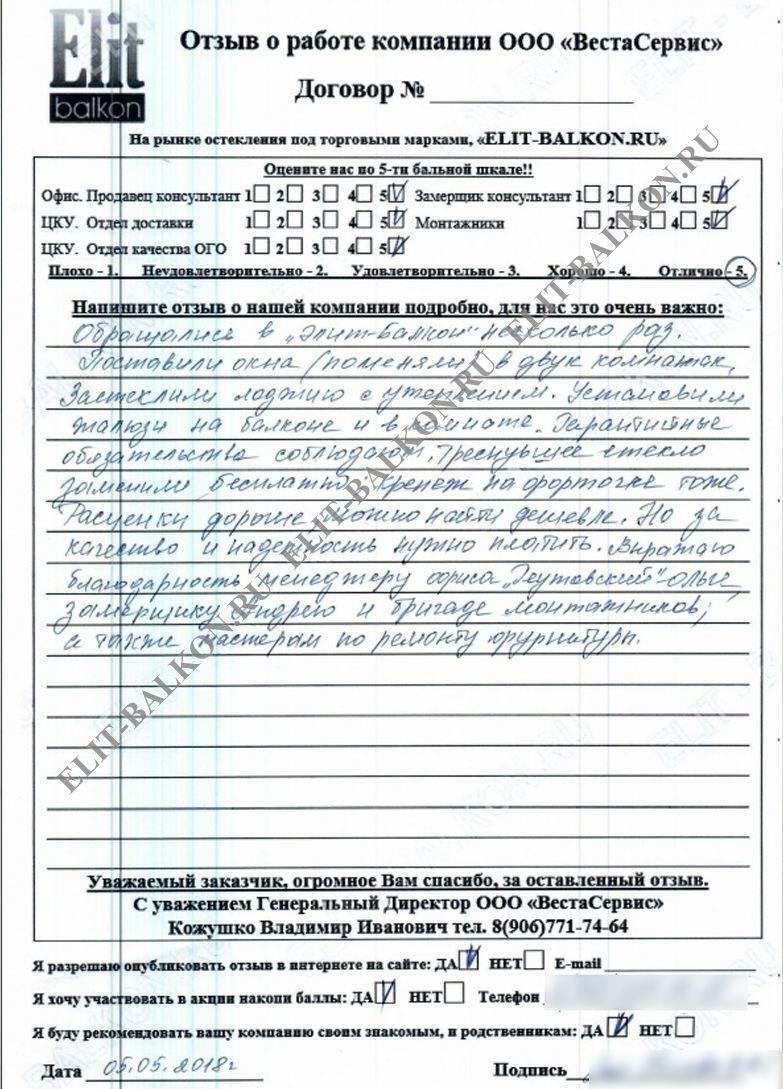 Elit
balkon
Отзыв о работе компании ООО «ВестаСервис»
Договор № 
На рынке остекления под торговыми марками, «ELIT-BALKON.RU»
Оцените нас по 5-ти бальной шкале!!
Офис. Продавец консультант 1 2 3 4 5 Замерщик консультант 1 2 3 4 5
ЦКУ. Отдел доставки 1 2 3 4 5 Монтажники 1 2 3 4 5
ЦКУ. Отдел качества ОГО 1 2 3 4 5
Плохо - 1. Неудовлетворительно - 2. Удовлетворительно - 3. Хорошо - 4. Отлично - 5.
Напишите отзыв о нашей компании подробно, для нас это очень важно:
Обращались в „Элит-Балкон" несколько раз.
Поставили окна (поменяли) в двух комнатах,
Застеклили лоджию с утеплением. Установили
жалюзи на балконе и в комнате. Гарантийные
обязательства соблюдают, треснувшее стекло
заменили бесплатно. Крепеж на форточке тоже.
Расценки дороже можно найти дешевле. Но за
качество и надежность нужно платить. Выражаю
благодарность менеджеру офиса „Реутовский" Ольге,
замерщику Андрею и бригаде монтажников,
а также мастерам по ремонту фурнитуры.
Уважаемый заказчик, огромное Вам спасибо, за оставленный отзыв.
С уважением Генеральный Директор ООО «ВестаСервис»
Кожушко Владимир Иванович тел. 8(906)771-74-64
Я разрешаю опубликовать отзыв в интернете на сайте: ДА НЕТ E-mail
Я хочу участвовать в акции накопи баллы: ДА НЕТ Телефон
Я буду рекомендовать вашу компанию своим знакомым, и родственникам: ДА НЕТ
Дата 05.05.2018г Подпись
ELIT-BALKON.RU ELIT-BALKON.RU ELIT-BALKON.RU